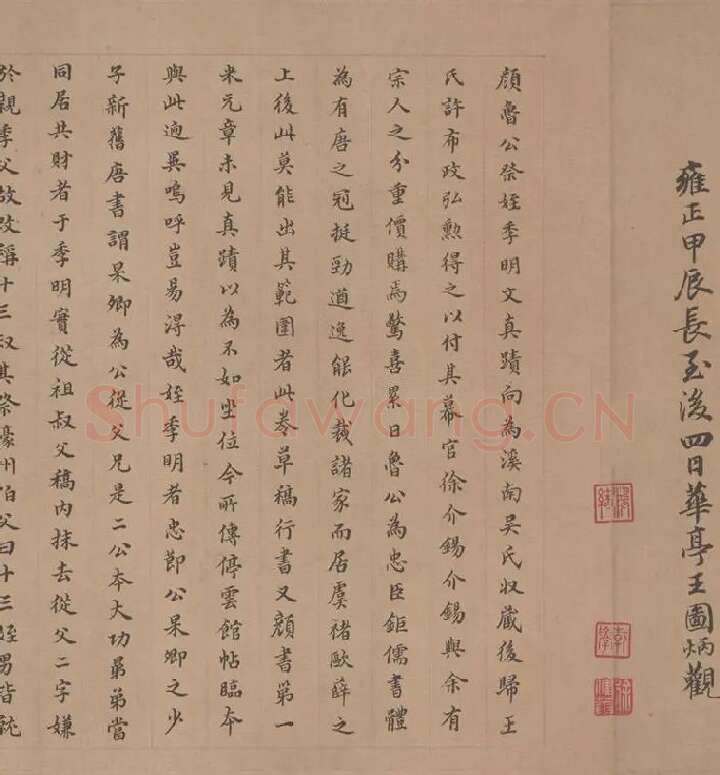 雍正甲辰長至後四日華亭王圖炳觀
顏魯公祭姪季明文真蹟向為溪南吳氏收藏後歸王
氏許布政弘勲得之以付其幕官徐介錫介錫與余有
宗人之分重價購焉驚喜累日魯公為忠臣鉅儒書體
為有唐之冠挺勁遒逸能化裁諸家而居虞褚歐薛之
上後此莫能出其範圍者此卷草稿行書又顏書第一
米元章未見真蹟以為不如坐位今所傳停雲館帖臨本
與此逈異嗚呼豈易得哉姪季明者忠節公杲卿之少
子新舊唐書謂杲卿為公從父兄是二公本大功弟弟當
同居共財者于季明實從祖叔父稿內抹去從父二字嫌
於親季父故改稱十三叔其祭濠州伯父曰十三姪男皆
Shufawang.CN